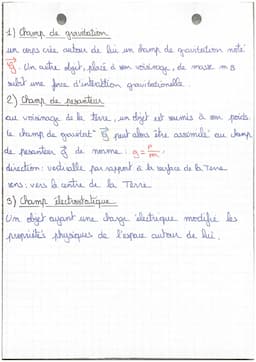 1) Champ de gravitation
un corps crée autour de lui un champ de gravitation noté
g⃗. Un autre objet, placé à son voisinage, de masse m B
subit une force d'interaction gravitationnelle.
2) Champ de pesanteur
au voisinage de la terre, un objet est soumis à son poids.
le champ de gravitat° g⃗ peut alors être assimilé au champ
de pesanteur g⃗ de norme : g = P/m.
direction : verticale par rapport à la surface de la Terre
sens : vers le centre de la Terre
3) Champ électrostatique
Un objet ayant une charge électrique modifie les
propriétés physiques de l'espace autour de lui.